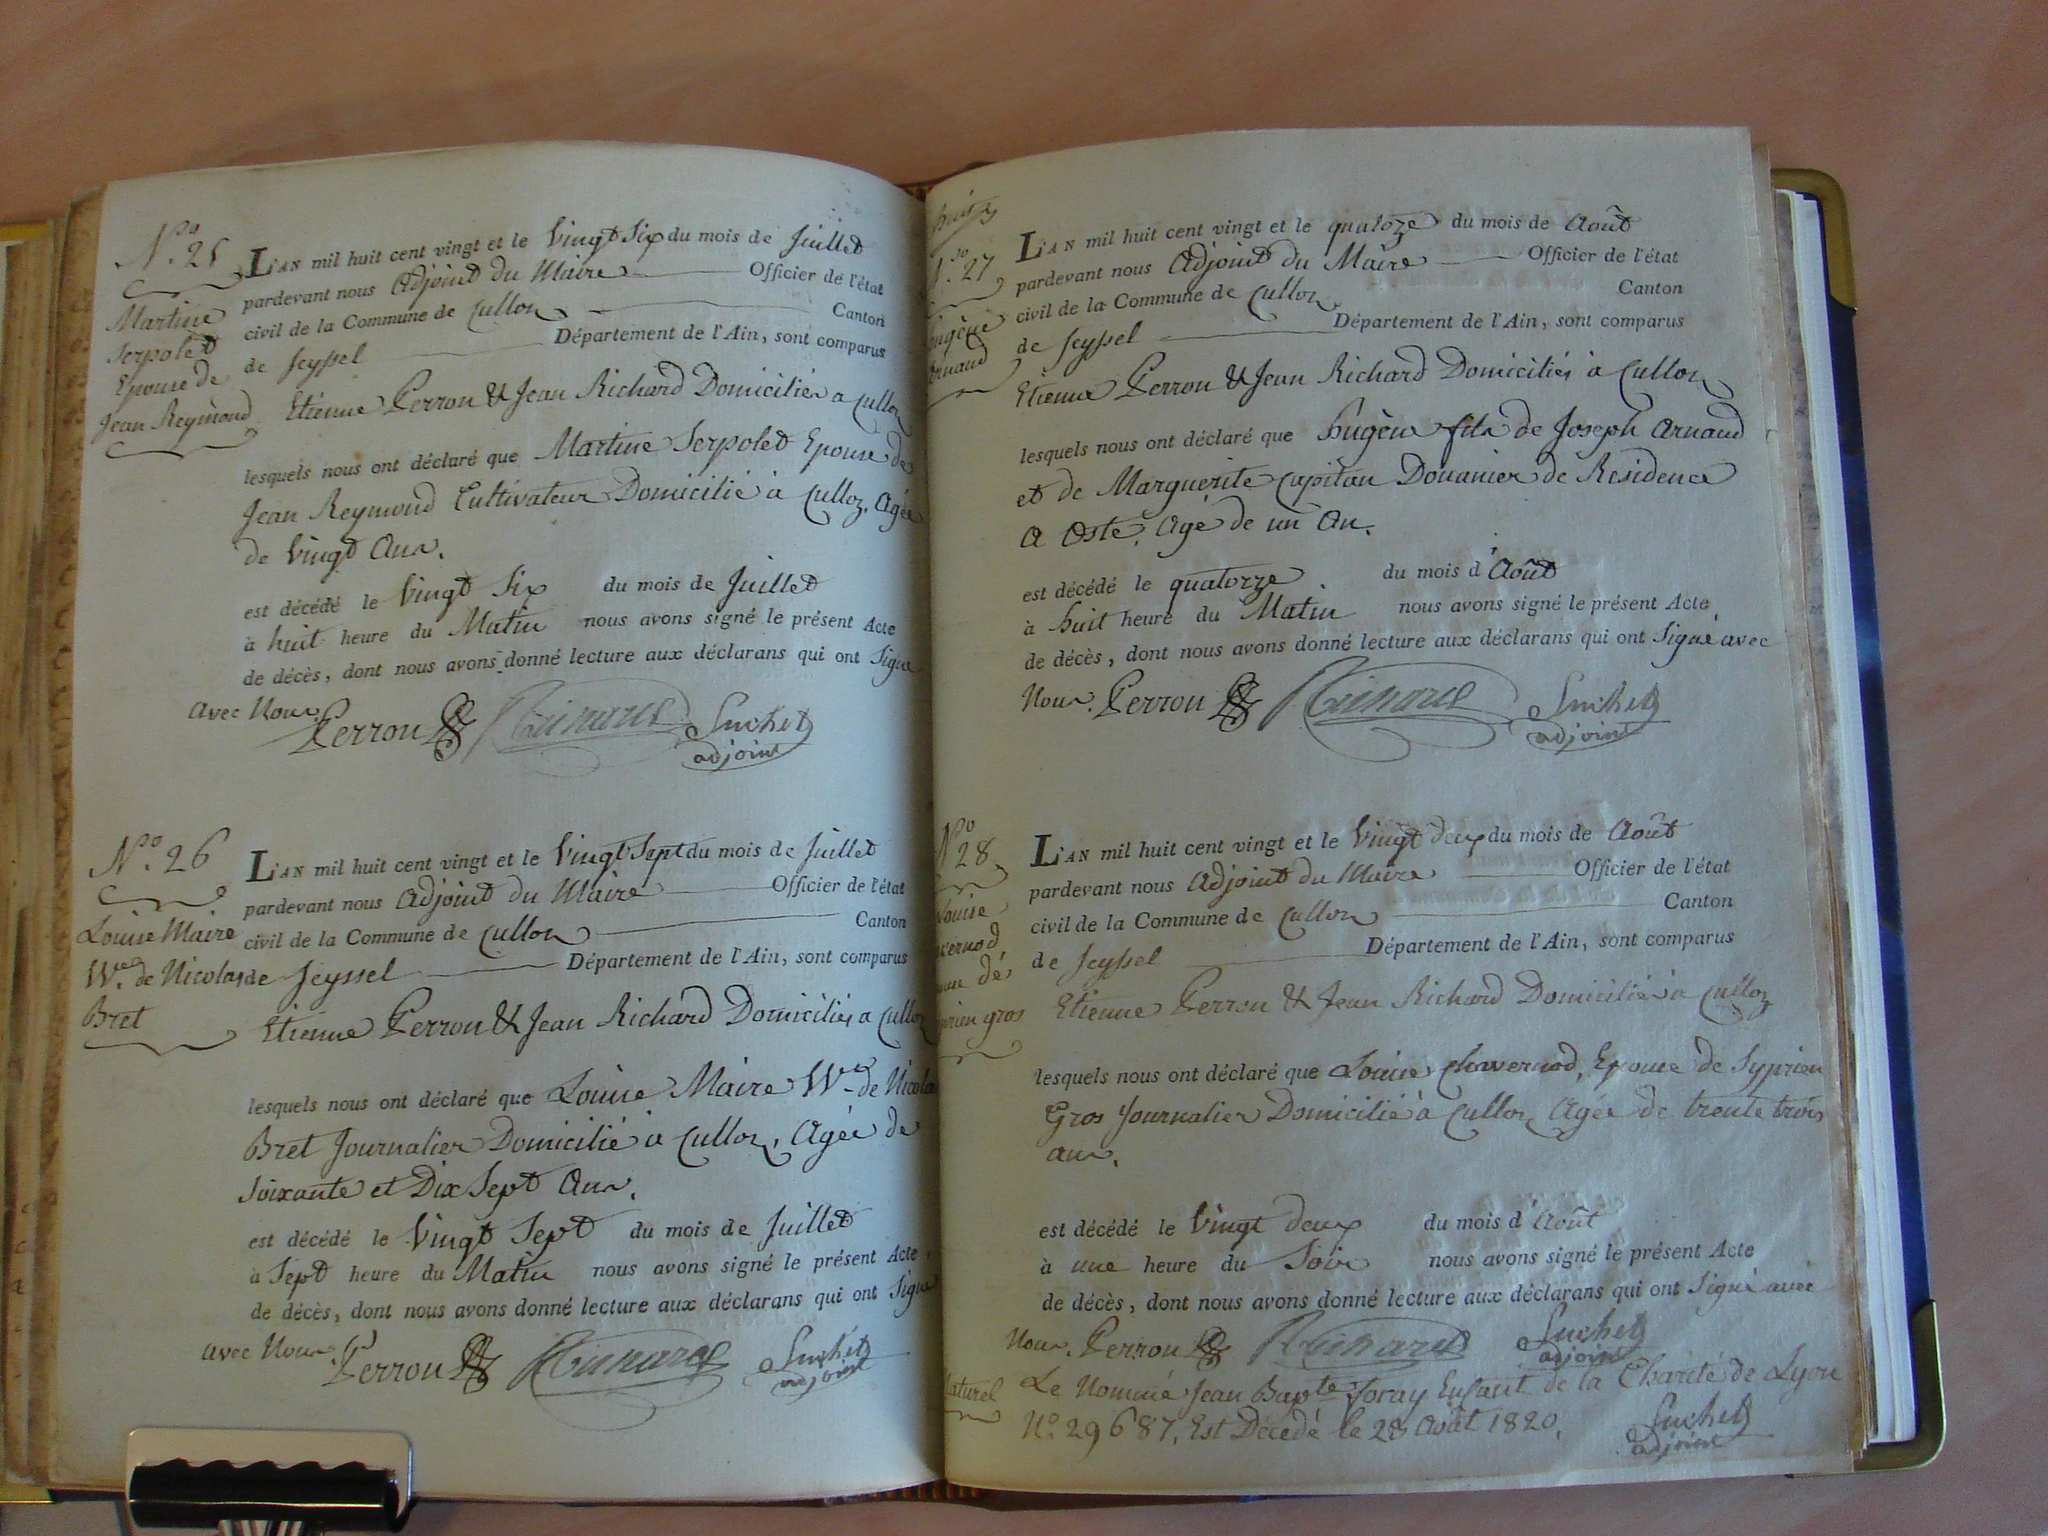 N.o 25
Martine
Serpolet
Epouse de
Jean Reymond
L'AN mil huit cent vingt et le Vingt Six du mois de Juillet
pardevant nous Adjoint du Maire Officier de l'état
civil de la Commune de Culloz Canton
de Seyssel Département de l'Ain, sont comparus
Etienne Perron & Jean Richard Domiciliés a Culloz
lesquels nous ont déclaré que Martine Serpolet Epouse de
Jean Reymond Cultivateur Domicilié à Culloz, Agée
de Vingt Ans.
est décédé le Vingt Six du mois de Juillet
à huit heure du Matin nous avons signé le présent Acte
de décès, dont nous avons donné lecture aux déclarans qui ont Signé
avec Nous. Perron Richard Suchet
adjoint
N.o 26
Louise Maire
Ve. de Nicolas
Bret
L'AN mil huit cent vingt et le Vingt Sept du mois de Juillet
pardevant nous Adjoint du Maire Officier de l'état
civil de la Commune de Culloz Canton
de Seyssel Département de l'Ain, sont comparus
Etienne Perron & Jean Richard Domiciliés a Culloz
lesquels nous ont déclaré que Louise Maire Ve. de Nicolas
Bret Journalier Domicilié à Culloz, Agée de
Soixante et Dix Sept Ans.
est décédé le Vingt Sept du mois de Juillet
à Sept heure du Matin nous avons signé le présent Acte
de décès, dont nous avons donné lecture aux déclarans qui ont Signé
avec Nous Perron Richard Suchet
adjoint
huit
N.o 27
L'AN mil huit cent vingt et le quatoze du mois de Août
pardevant nous Adjoint du Maire Officier de l'état
civil de la Commune de Culloz Canton
de Seyssel Département de l'Ain, sont comparus
Etienne Perron & Jean Richard Domiciliés à Culloz
lesquels nous ont déclaré que hugène fils de Joseph Arnaud
et de Marguerite Capitan Douanier de Residence
A Oste, Agé de un An.
est décédé le quatorze du mois d'Août
à huit heure du Matin nous avons signé le présent Acte
de décès, dont nous avons donné lecture aux déclarans qui ont Signé avec
Nous. Perron Richard Suchet
adjoint
No 28
Louise
L'AN mil huit cent vingt et le Vingt deux du mois de Août
pardevant nous Adjoint du Maire Officier de l'état
civil de la Commune de Culloz Canton
de Seyssel Département de l'Ain, sont comparus
Etienne Perron & Jean Richard Domiciliés à Culloz
lesquels nous ont déclaré que Louise Chavernod, Epouse de Syprien
Gros Journalier Domicilié à Culloz Agée de trente trois
ans.
est décédé le Vingt deux du mois d'Août
à une heure du Soir nous avons signé le présent Acte
de décès, dont nous avons donné lecture aux déclarans qui ont Signé avec
Nous. Perron Richard Suchet
adjoint
Naturel
Le Nommé Jean Bapte Foray Enfant de la Charité de Lyon
No. 29687, Est Décédé le 28 Août 1820. Suchet
adjoint